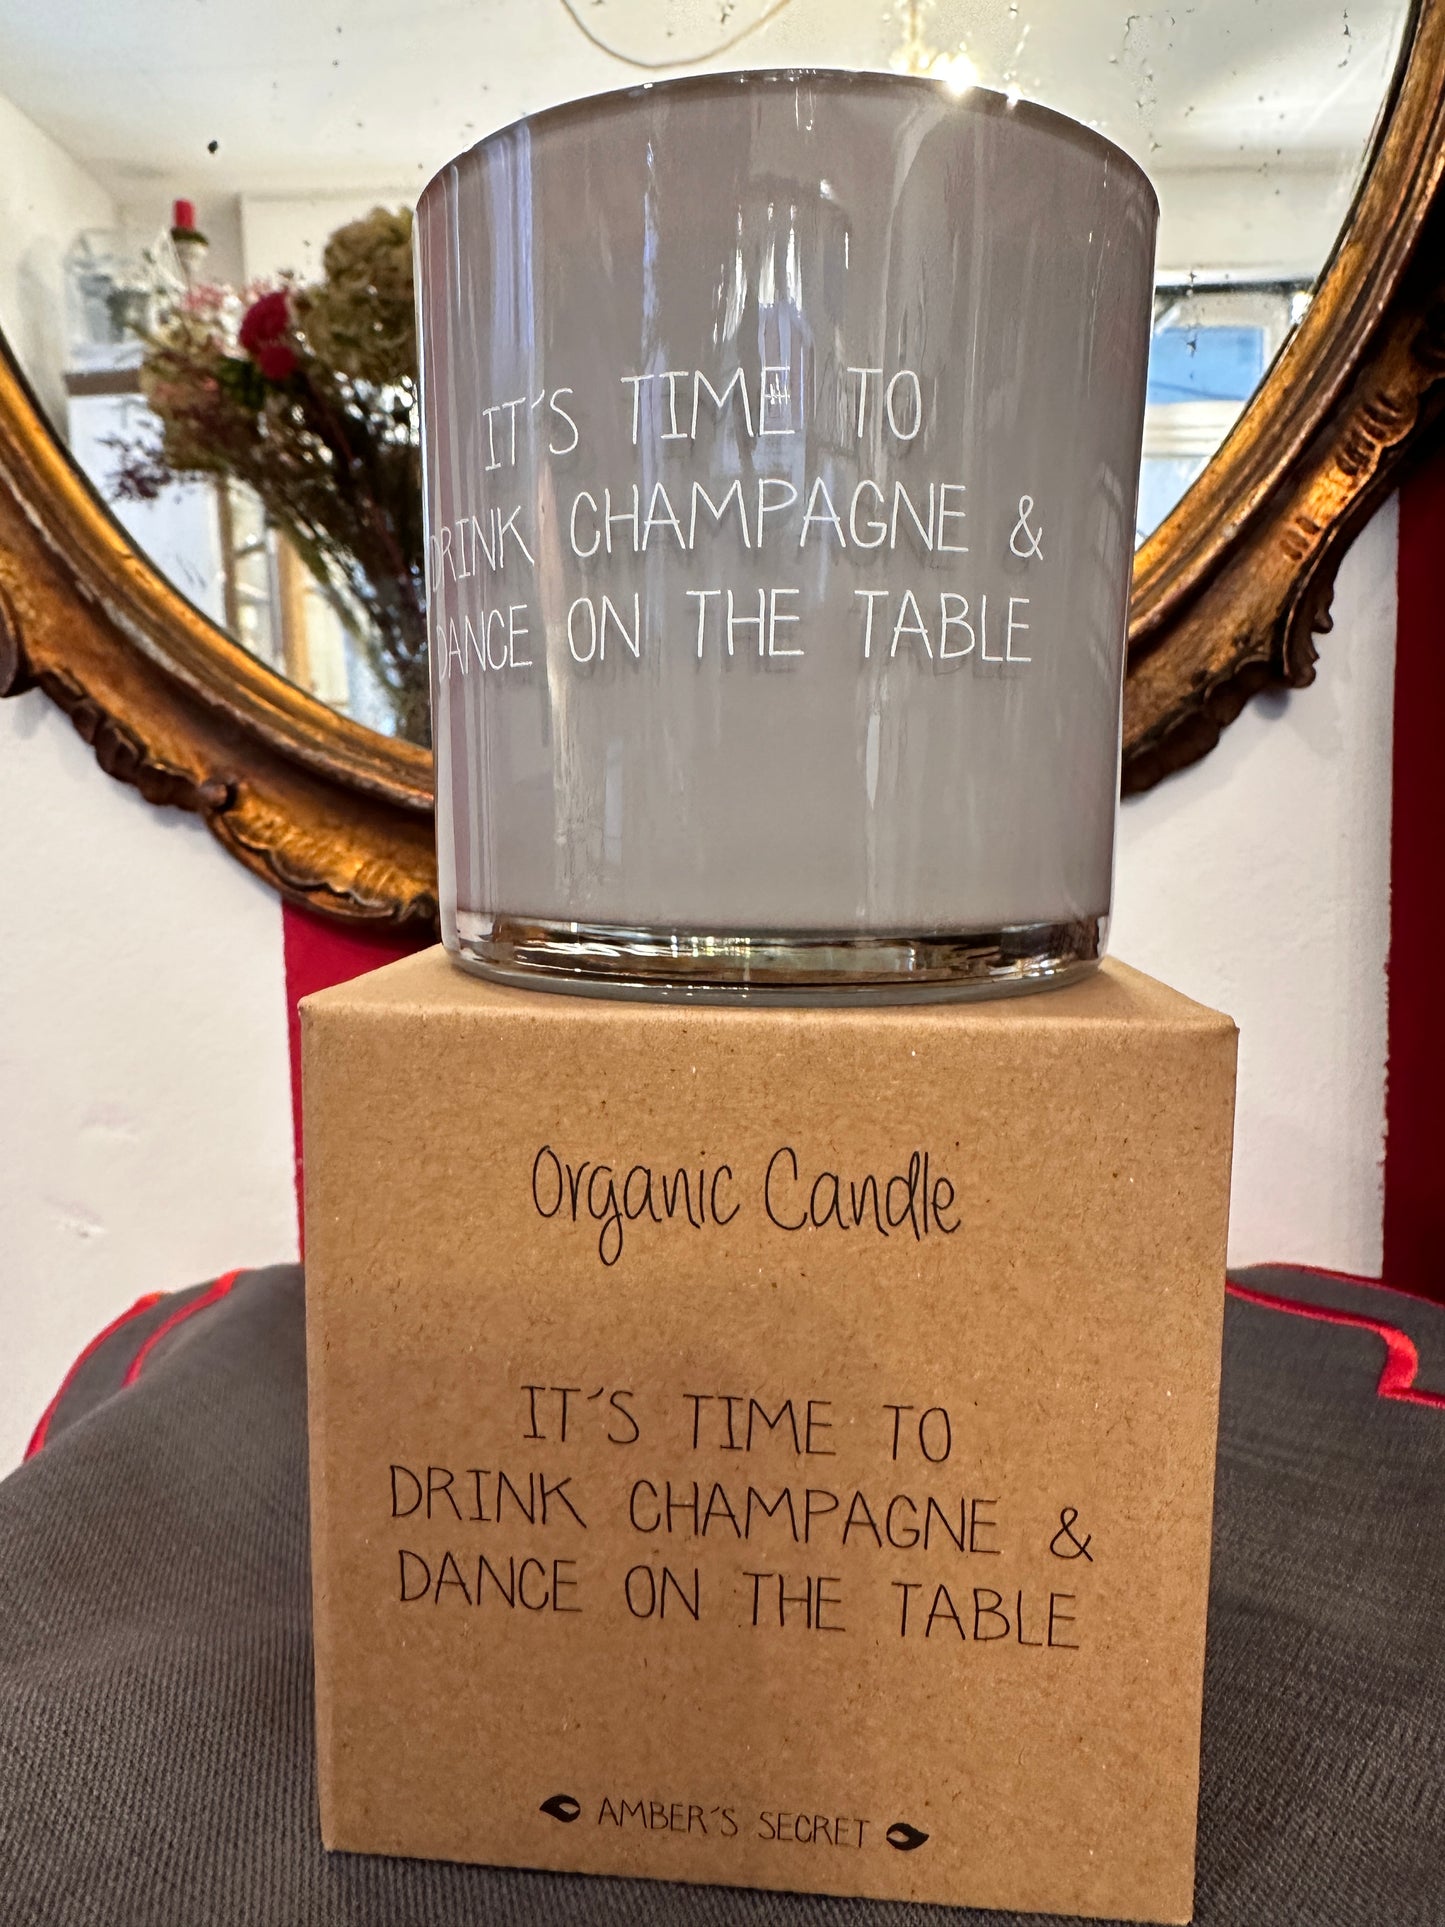 IT´S TIME TO
DRINK CHAMPAGNE &
DANCE ON THE TABLE
Organic Candle
IT´S TIME TO
DRINK CHAMPAGNE &
DANCE ON THE TABLE
AMBER´S SECRET